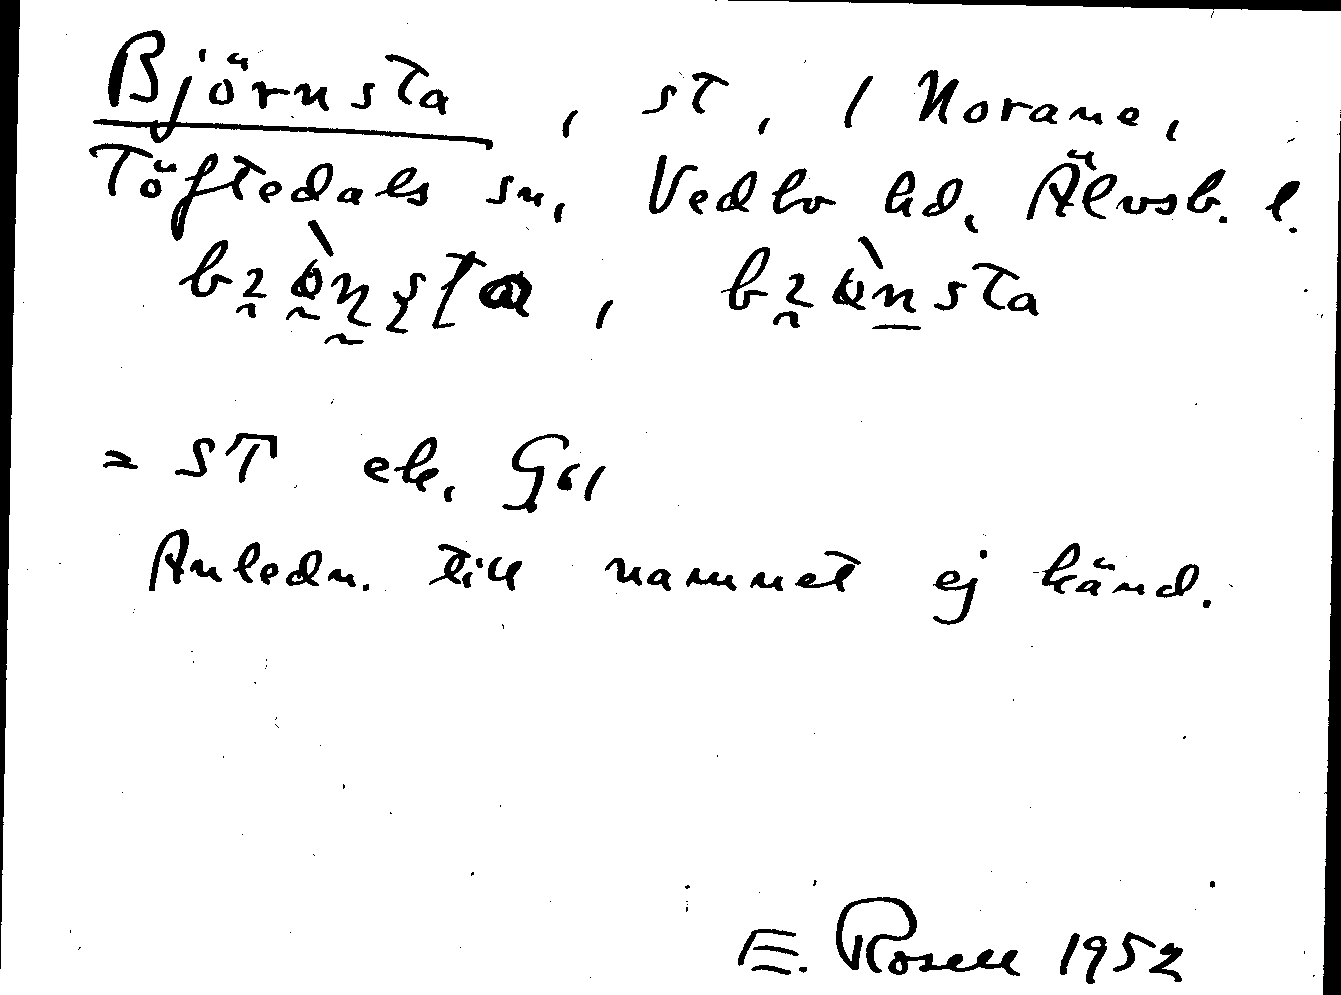 Björnsta, st, i Norane,
Töftedals sn, Vedbo hd, Älvsb. l.
= ST ek. G61
Anledn. till namnet ej känd.
E. Rosell 1952